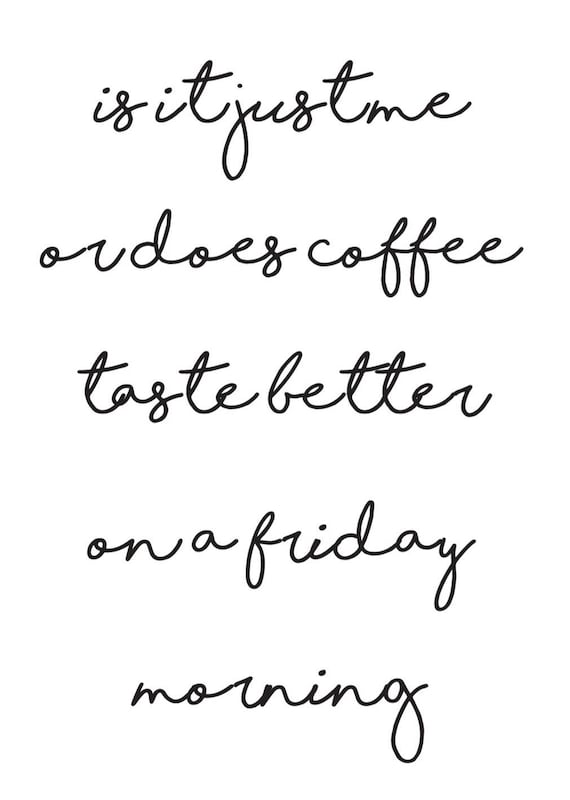 is it just me
or does coffee
taste better
on a friday
morning